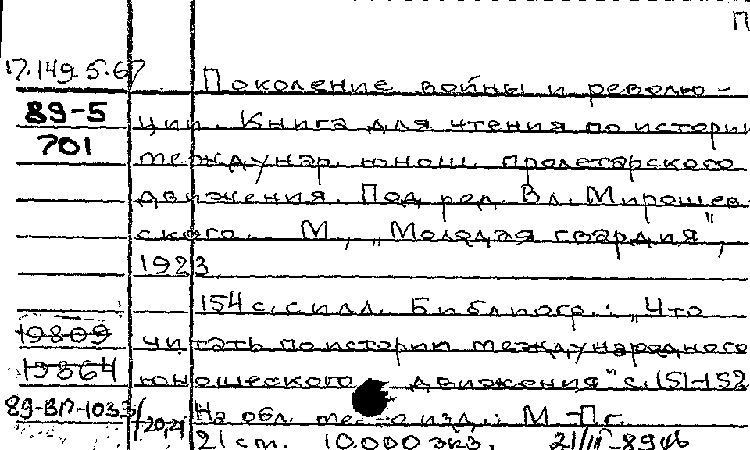 П
17.149.5.67
Поколение войны и револю-
89-5
ции. Книга для чтения по истории
701
междунар. юнош. пролетарского
движения. Под ред. Вл. Мирошев
ского. М., „Молодая гвардия",
1923
154 с. с илл. Библиогр.: „Что
19809
читать по истории международного
19864
юношеского движения" с. 151-152
89-ВП-1033/20,21
На обл. место изд.: М.-Пг.
21 см. 10.000 экз. 21/III-89